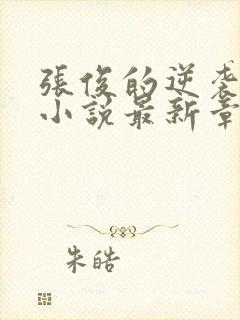 張俊的逆襲
小說最新章
朱皓